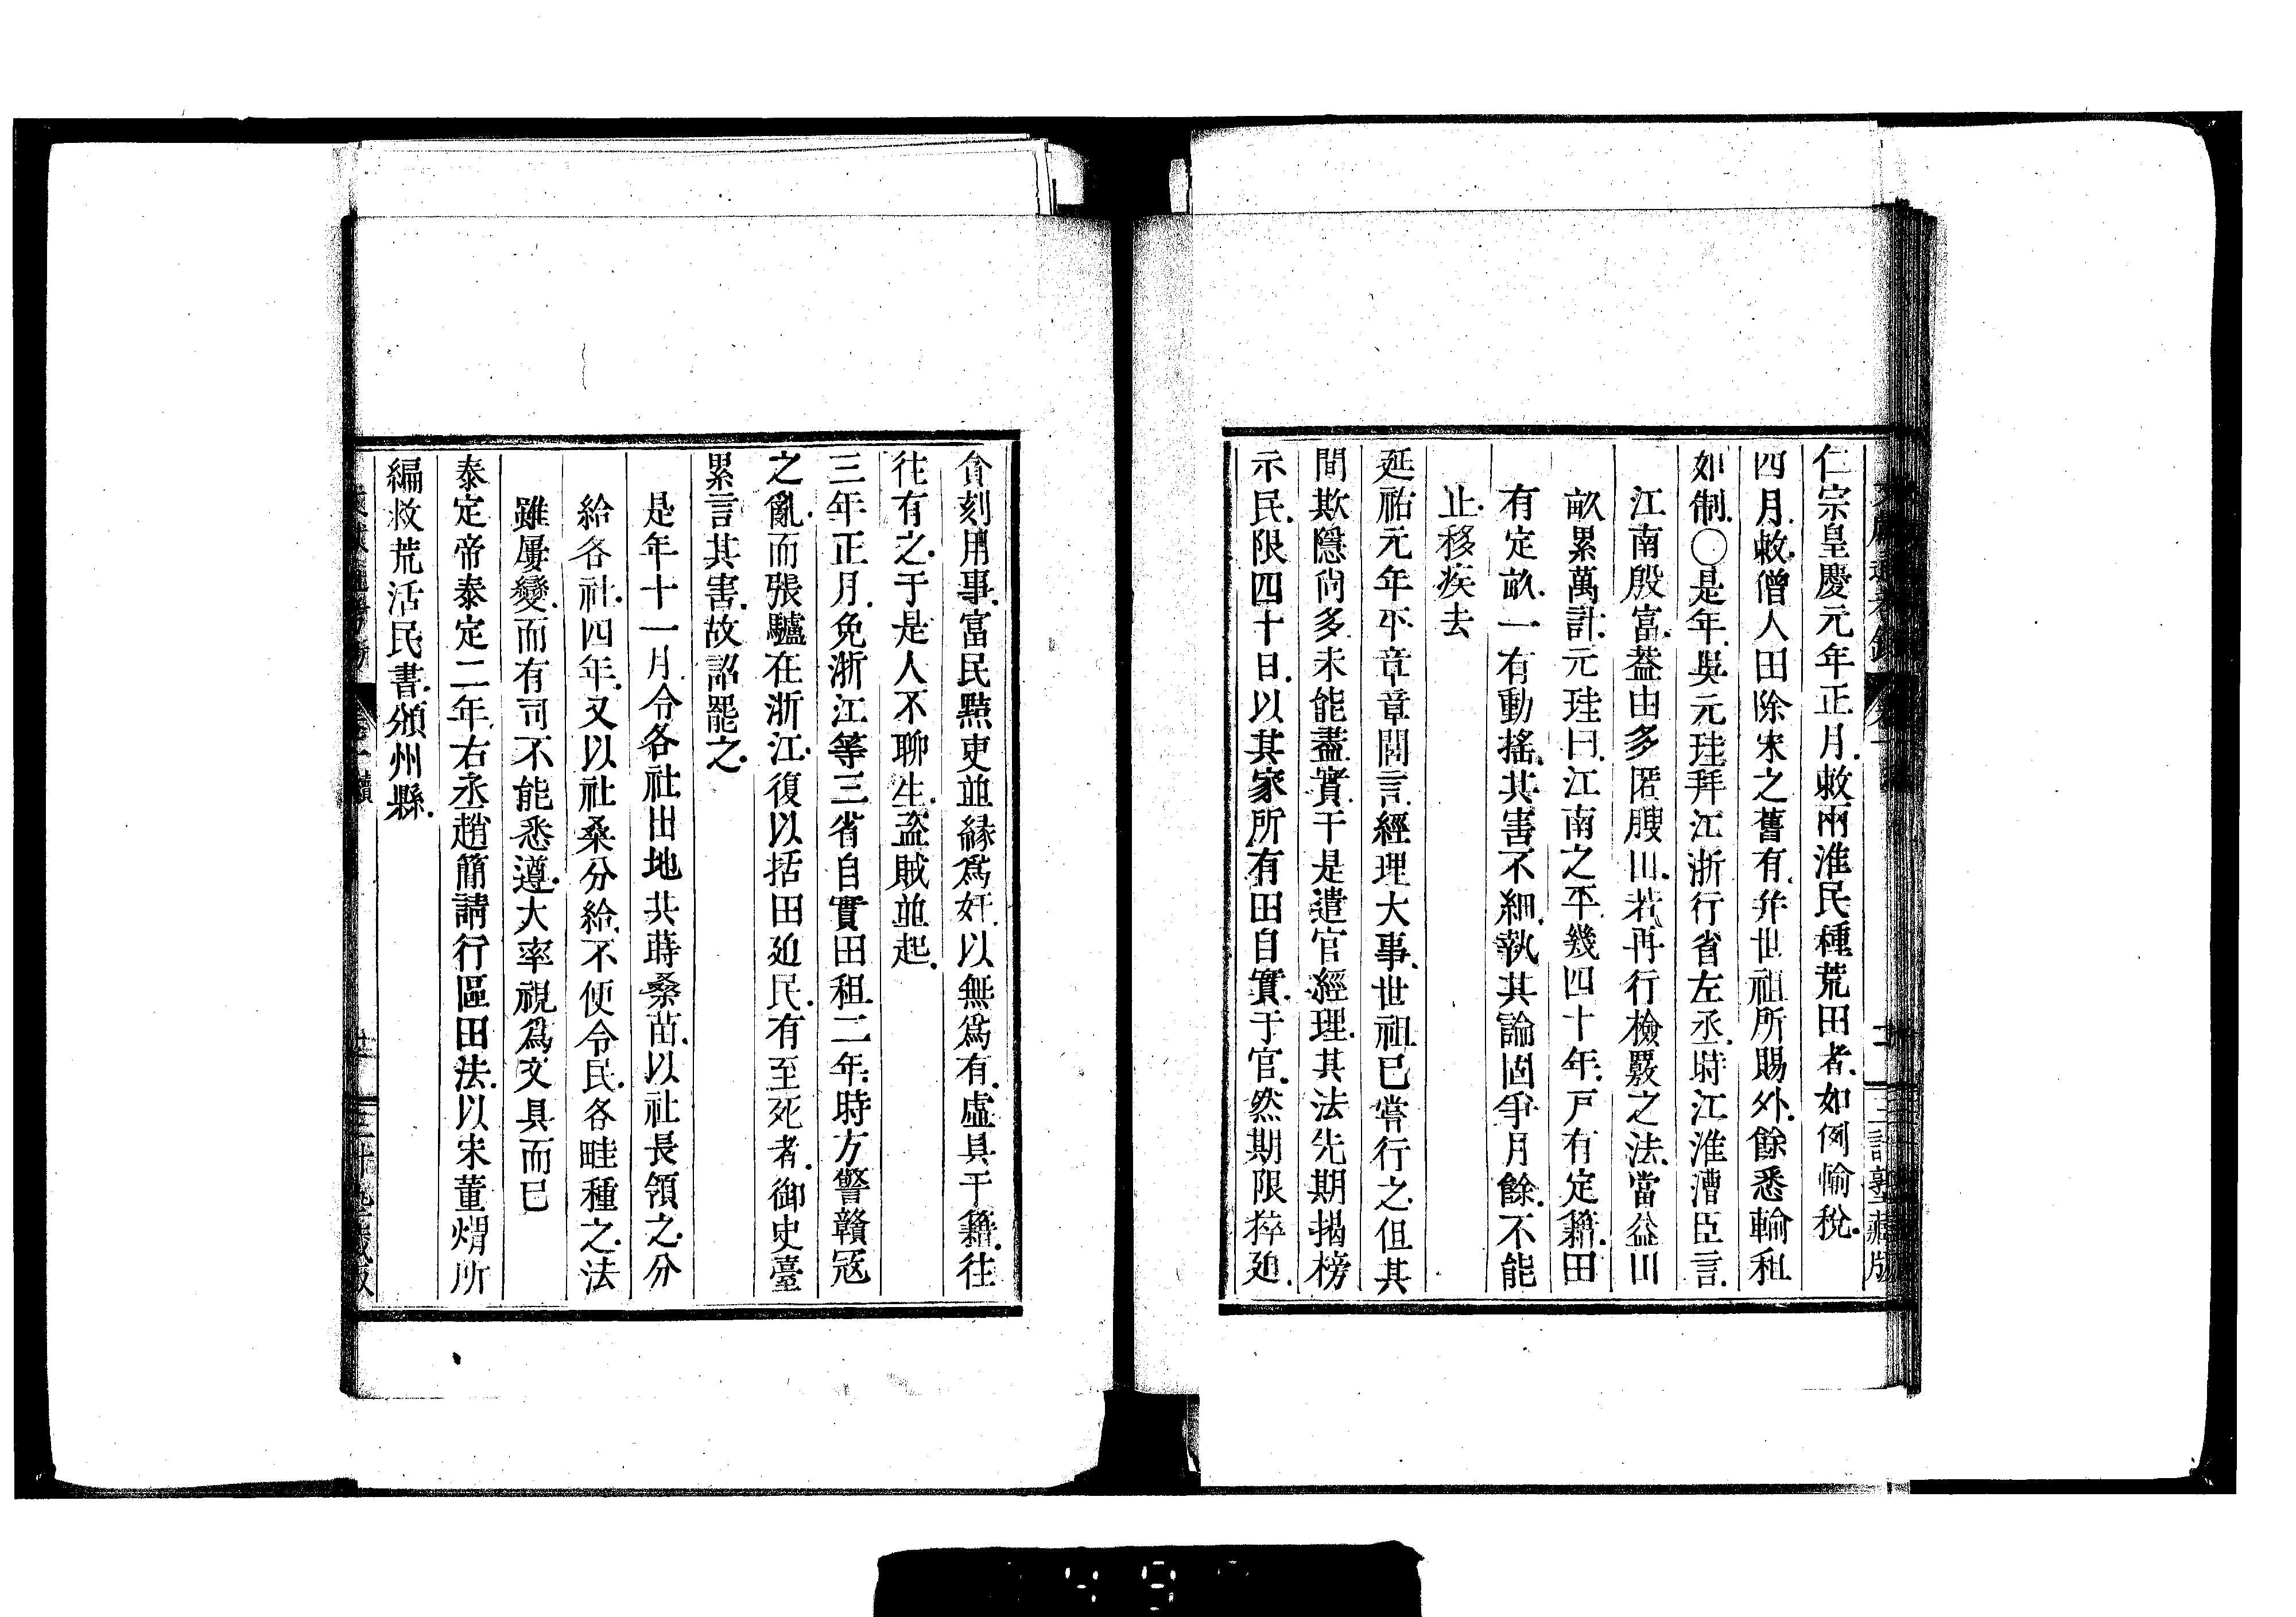 仁宗皇慶元年正月敕兩淮民種荒田者如例輸稅
四月敕僧人田除宋之舊有并世祖所賜外餘悉輸租
如制〇是年吳元珪拜江浙行省左丞時江淮漕臣言
江南殷富蓋由多匿腴田若再行檢覈之法當益田
畝累萬計元珪曰江南之平幾四十年戸有定籍田
有定畝一有動搖其害不細執其論固爭月餘不能
止移疾去
延祐元年平章章閭言經理大事世祖已嘗行之但其
間欺隱尚多未能盡實于是遣官經理其法先期揭榜
示民限四十日以其家所有田自實于官然期限猝廹
貪刻用事富民黠吏並緣爲奸以無爲有虛具于籍往
往有之于是人不聊生盗賊並起
三年正月免浙江等三省自實田租二年時方警贛冦
之亂而張驢在浙江復以括田廹民有至死者御史臺
累言其害故詔罷之
是年十一月令各社出地共蒔桑苗以社長領之分
給各社四年又以社桑分給不便令民各畦種之法
雖屢變而有司不能悉遵大率視爲文具而已
泰定帝泰定二年右丞趙簡請行區田法以宋董煟所
編救荒活民書頒州縣